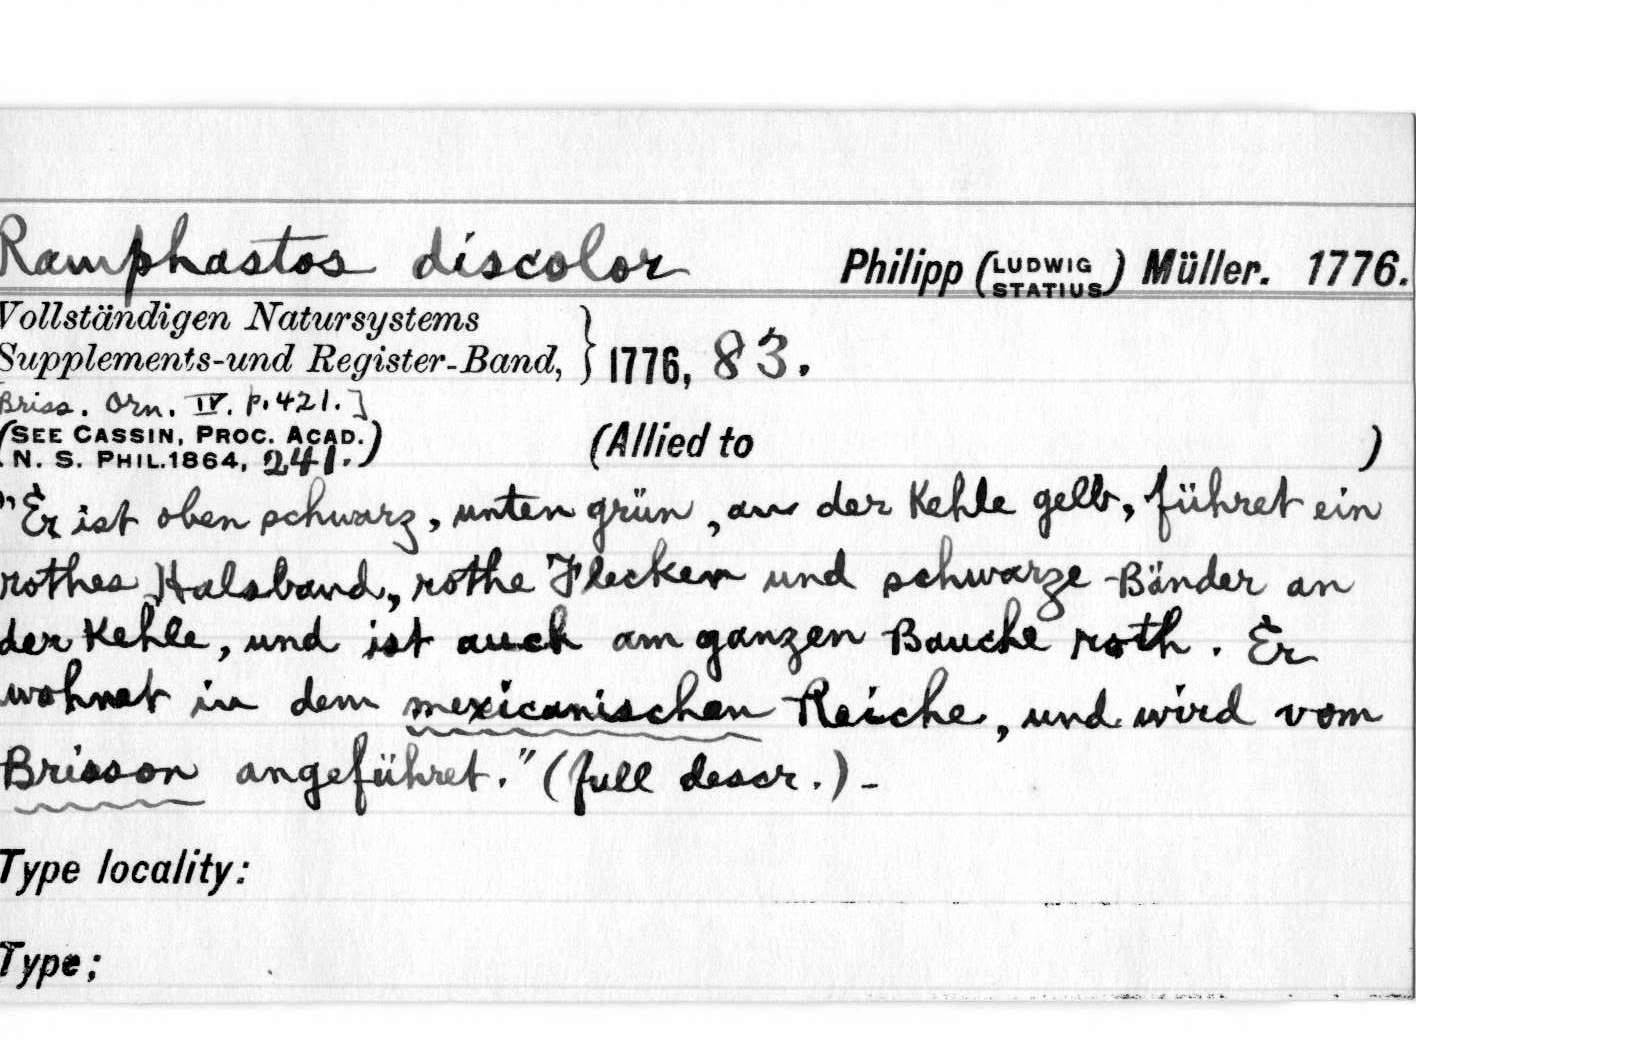 Ramphastos discolor Philipp (LUDWIG STATIUS) Müller. 1776.
Vollständigen Natursystems
Supplements-und Register-Band, } 1776, 83.
Briss. Orn. IV. p.421.]
(SEE CASSIN, PROC. ACAD.
N. S. PHIL. 1864, 241.) (Allied to )
"Er ist oben schwarz, unten grün, an der Kehle gelb, führet ein
rothes Halsband, rothe Flecken und schwarze Bänder an
der Kehle, und ist auch am ganzen Bauche roth. Er
wohnet in dem mexicanischen Reiche, und wird vom
Brisson angeführet." (full descr.) -
Type locality:
Type;